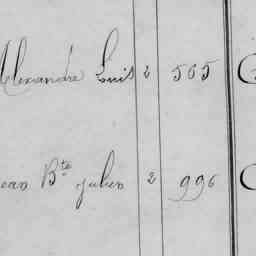 Alexandre Louis 2 565
Jean Bte Julien 2 996